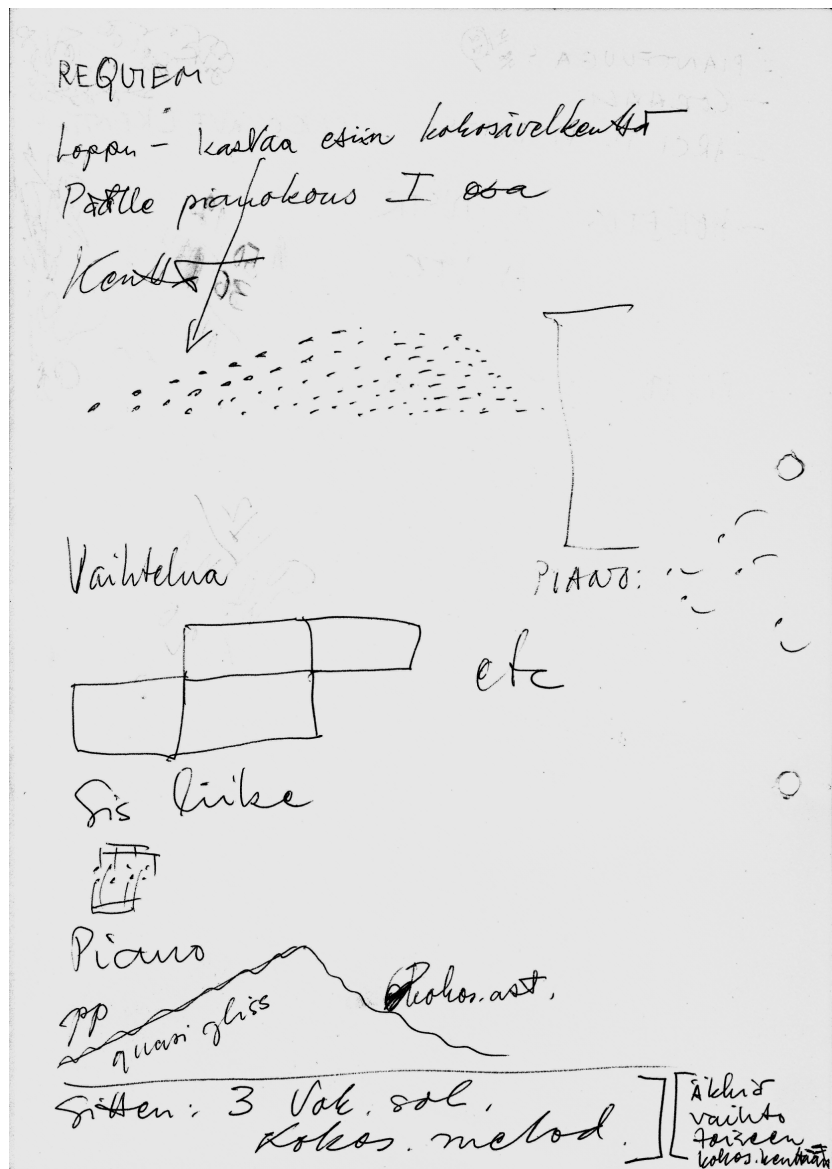 REQUIEM
Loppu - kasvaa esiin kokosävelkenttä
Päälle pianokous I osa
Kenttä
Vaihtelua
PIANO:
etc
Sis liike
Piano
pp
quasi gliss
kokos.ast.
Sitten: 3 Vok. sol.
Kokos. melod.
Äkkiä
vaihto
toiseen
kokos.kenttään